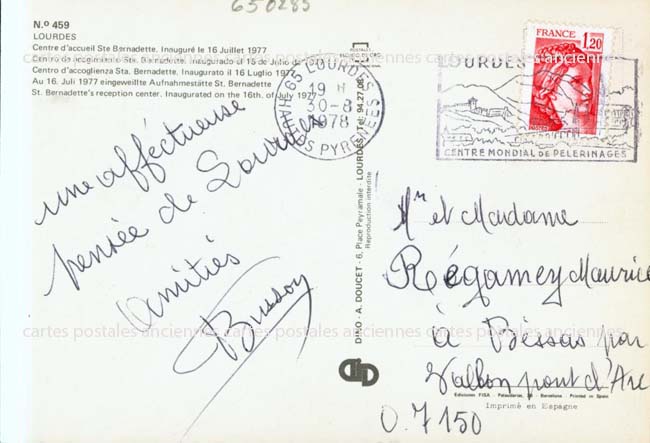 650285
N.º 459
LOURDES
Centre d'accueil Ste Bernadette. Inauguré le 16 Juillet 1977
Centro de acogimiento Sta. Bernadette. Inaugurado el 15 de Julio de
Centro d'accoglienza Sta. Bernadette. Inaugurato il 16 Luglio 1977
Au 16. Juli 1977 eingeweihte Aufnahmestätte St. Bernadette
St. Bernadette's reception center. Inaugurated on the 16th. of July 1977
une affectueuse
pensée de Lourdes
Amitiés
Busson
65 LOURDES
19 H
30-8
1978
HAUTES PYRENEES
LOURDES
CENTRE MONDIAL DE PELERINAGES
FRANCE
1,20
DINO - A. DOUCET - 6, Place Peyramale - LOURDES - Tel: 94.27.06
Reproduction interdite
Mr et Madame
Régamey Maurice
à Bessas par
Vallon pont d'Arc
0.7150
Ediciones FISA - Palaudarias, 26 - Barcelona - Printed in Spain
Imprimé en Espagne
cartes postales anciennes cartes postales anciennes cartes postales anciennes